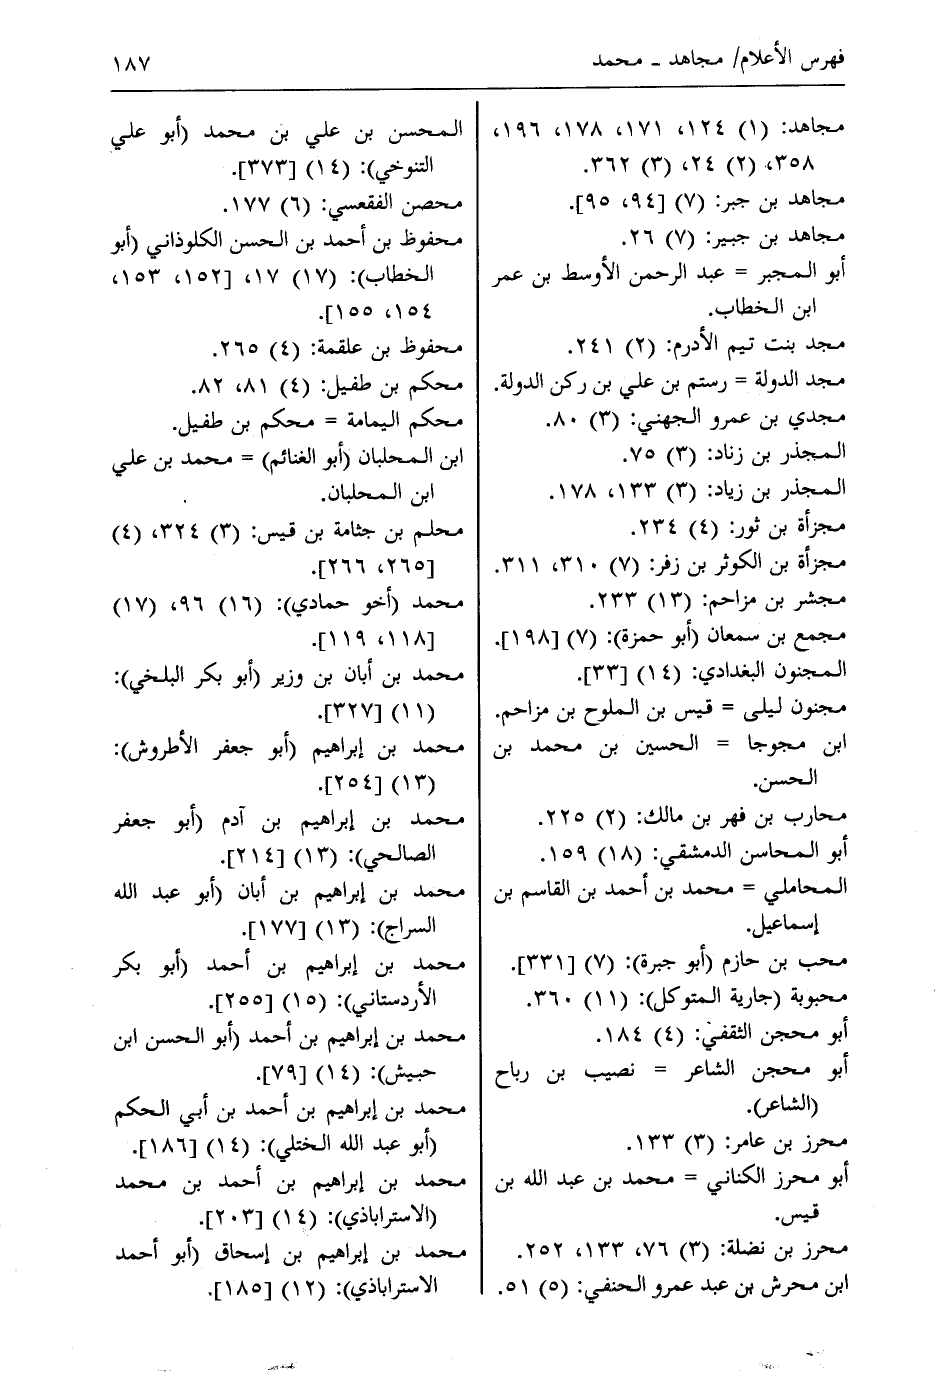 فهرس الأعلام/ مجاهد ـ محمد
١٨٧
مجاهد: (١) ١٢٤، ١٧١، ١٧٨، ١٩٦،
٣٥٨، (٢) ٢٤، (٣) ٣٦٢.
مجاهد بن جبر: (٧) [٩٤، ٩٥].
مجاهد بن جبير: (٧) ٢٦.
أبو المجبر = عبد الرحمن الأوسط بن عمر
ابن الخطاب.
مجد بنت تيم الأدرم: (٢) ٢٤١.
مجد الدولة = رستم بن علي بن ركن الدولة.
مجدي بن عمرو الجهني: (٣) ٨٠.
المجذر بن زناد: (٣) ٧٥.
المجذر بن زياد: (٣) ١٣٣، ١٧٨.
مجزأة بن ثور: (٤) ٢٣٤.
مجزأة بن الكوثر بن زفر: (٧) ٣١٠، ٣١١.
مجشر بن مزاحم: (١٣) ٢٣٣.
مجمع بن سمعان (أبو حمزة): (٧) [١٩٨].
المجنون البغدادي: (١٤) [٣٣].
مجنون ليلى = قيس بن الملوح بن مزاحم.
ابن مجوجا = الحسين بن محمد بن
الحسن.
محارب بن فهر بن مالك: (٢) ٢٢٥.
أبو المحاسن الدمشقي: (١٨) ١٥٩.
المحاملي = محمد بن أحمد بن القاسم بن
إسماعيل.
محب بن حازم (أبو جبرة): (٧) [٣٣١].
محبوبة (جارية المتوكل): (١١) ٣٦٠.
أبو محجن الثقفي: (٤) ١٨٤.
أبو محجن الشاعر = نصيب بن رباح
(الشاعر).
محرز بن عامر: (٣) ١٣٣.
أبو محرز الكناني = محمد بن عبد الله بن
قيس.
محرز بن نضلة: (٣) ٧٦، ١٣٣، ٢٥٢.
ابن محرش بن عبد عمرو الحنفي: (٥) ٥١.
المحسن بن علي بن محمد (أبو علي
التنوخي): (١٤) [٣٧٣].
محصن الفقعسي: (٦) ١٧٧.
محفوظ بن أحمد بن الحسن الكلوذاني (أبو
الخطاب): (١٧) ١٧، [١٥٢، ١٥٣،
١٥٤، ١٥٥].
محفوظ بن علقمة: (٤) ٢٦٥.
محكم بن طفيل: (٤) ٨١، ٨٢.
محكم اليمامة = محكم بن طفيل.
ابن المحلبان (أبو الغنائم) = محمد بن علي
ابن المحلبان.
محلم بن جثامة بن قيس: (٣) ٣٢٤، (٤)
[٢٦٥، ٢٦٦].
محمد (أخو حمادي): (١٦) ٩٦، (١٧)
[١١٨، ١١٩].
محمد بن أبان بن وزير (أبو بكر البلخي):
(١١) [٣٢٧].
محمد بن إبراهيم (أبو جعفر الأطروش):
(١٣) [٢٥٤].
محمد بن إبراهيم بن آدم (أبو جعفر
الصالحي): (١٣) [٢١٤].
محمد بن إبراهيم بن أبان (أبو عبد الله
السراج): (١٣) [١٧٧].
محمد بن إبراهيم بن أحمد (أبو بكر
الأردستاني): (١٥) [٢٥٥].
محمد بن إبراهيم بن أحمد (أبو الحسن ابن
حبيش): (١٤) [٧٩].
محمد بن إبراهيم بن أحمد بن أبي الحكم
(أبو عبد الله الختلي): (١٤) [١٨٦].
محمد بن إبراهيم بن أحمد بن محمد
(الاستراباذي): (١٤) [٢٠٣].
محمد بن إبراهيم بن إسحاق (أبو أحمد
الاستراباذي): (١٢) [١٨٥].